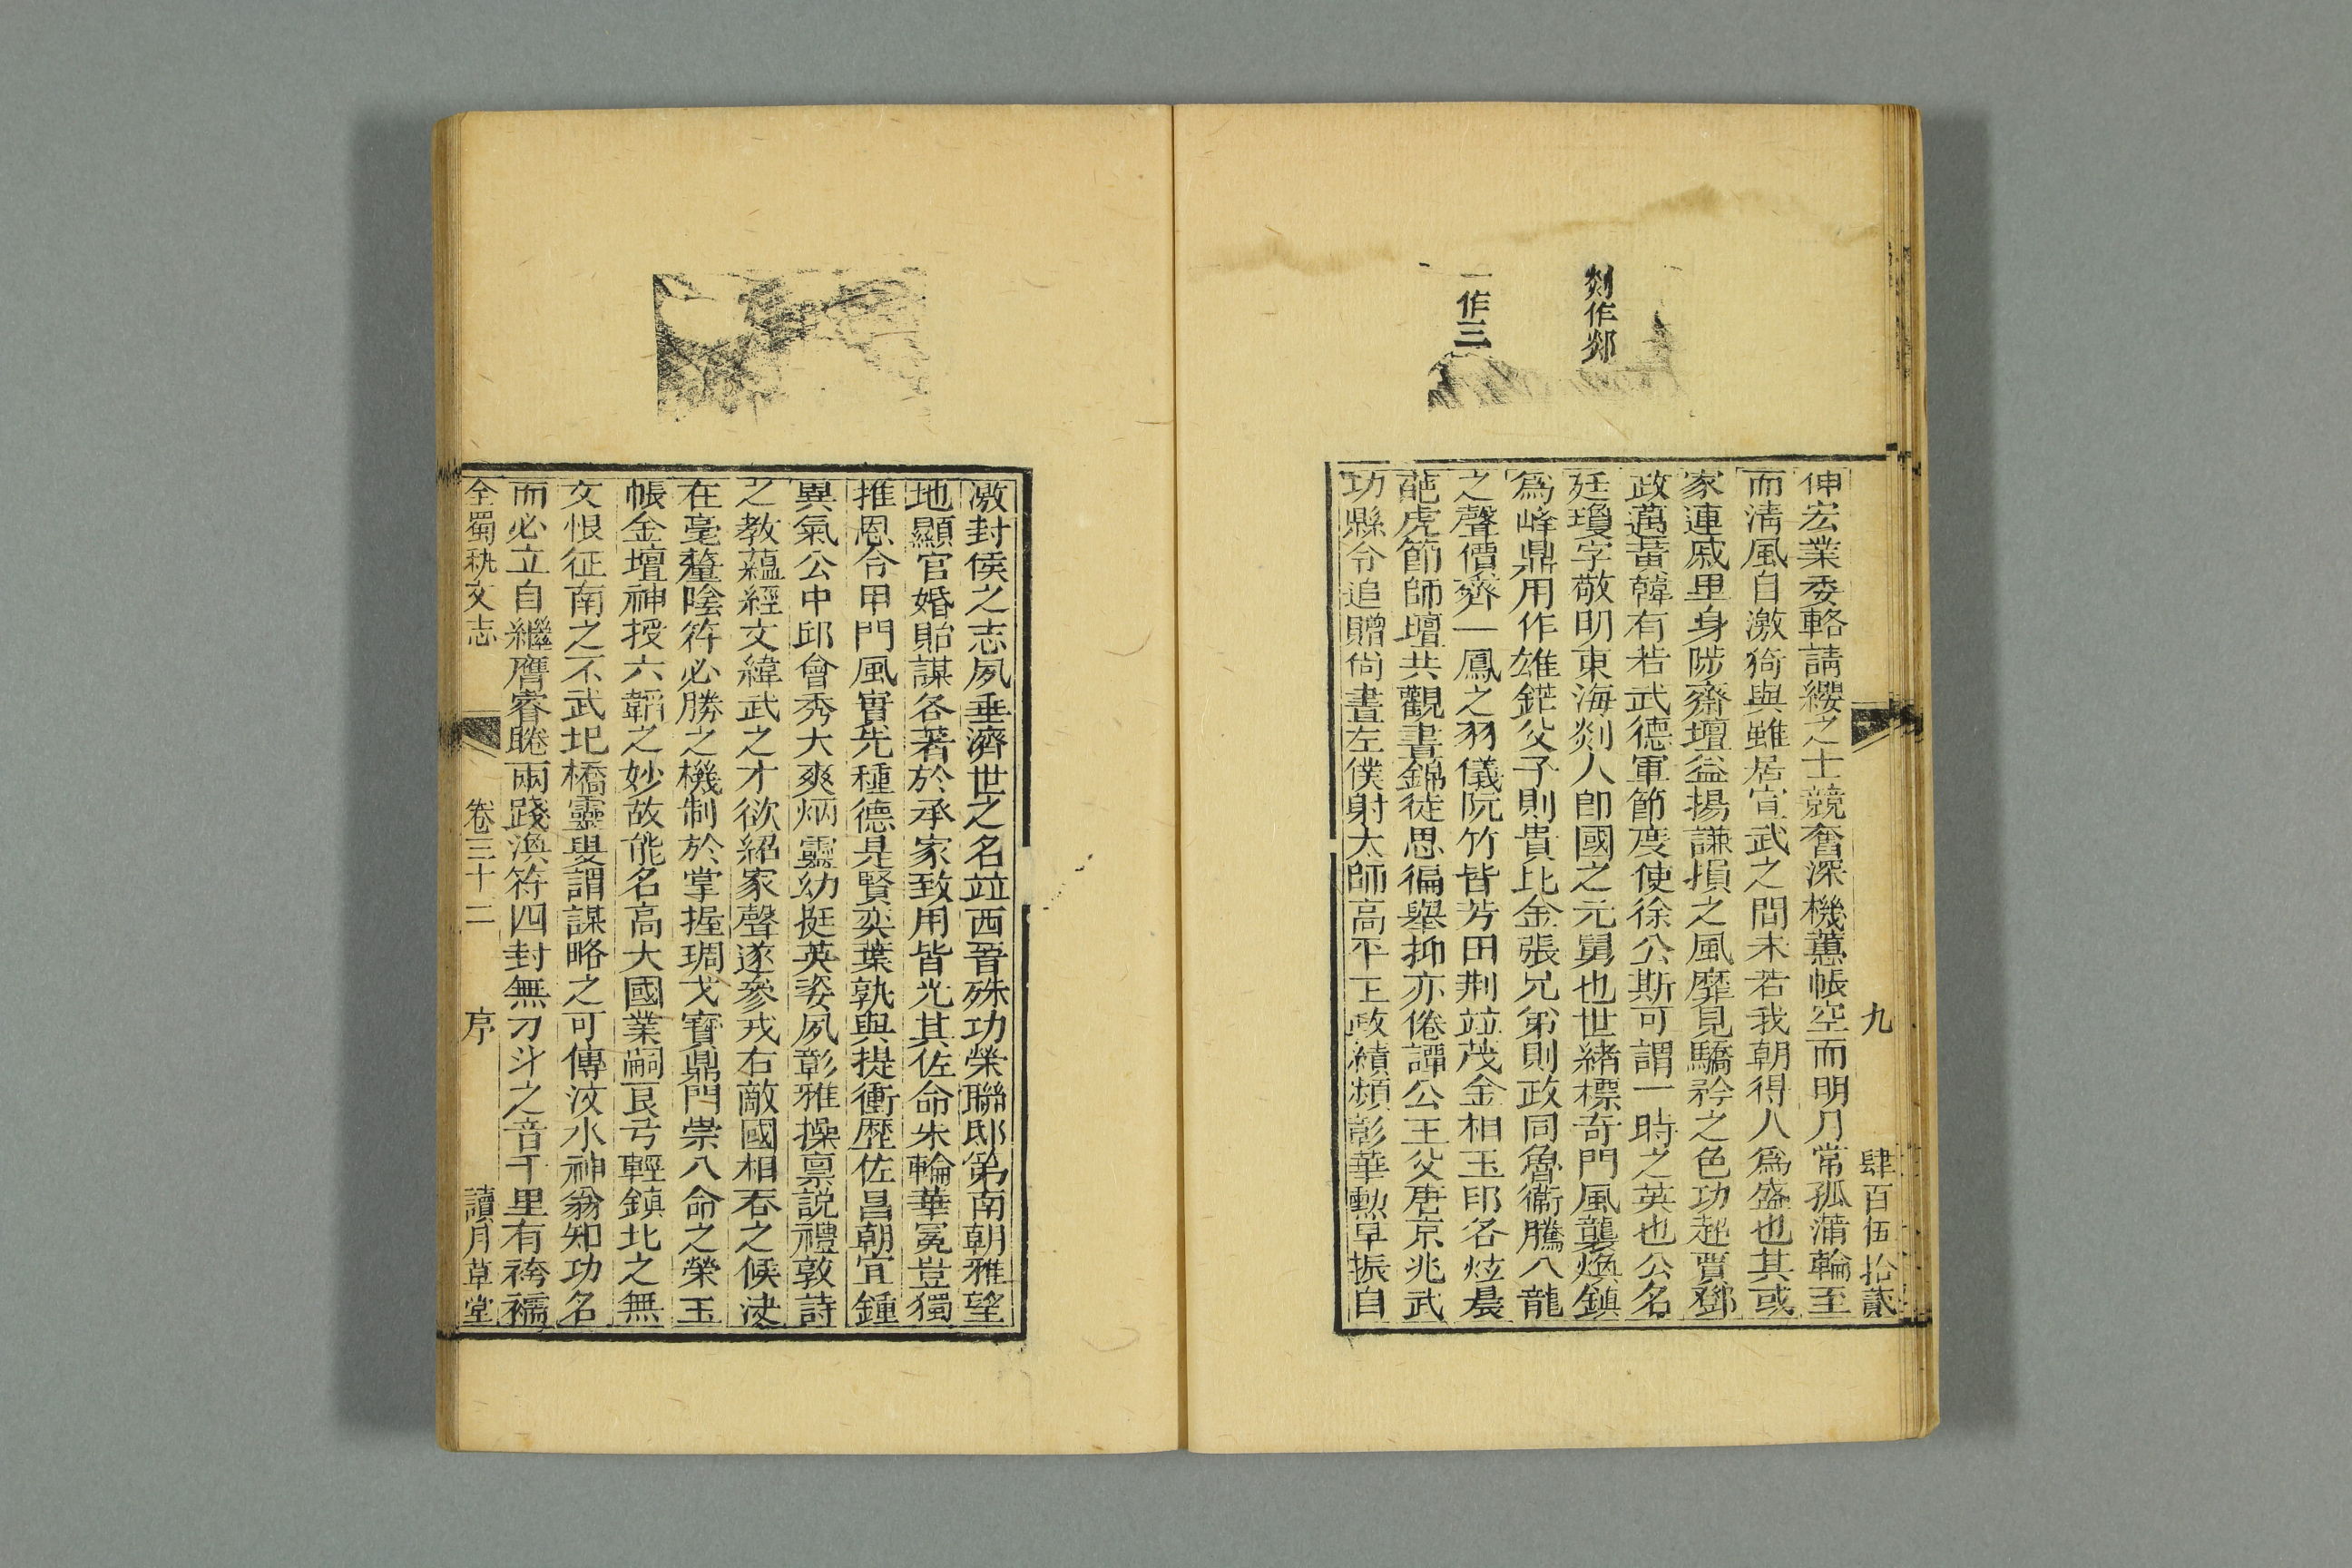 剡作郯
一作三
九
肆百伍拾貳
伸宏業委輅請纓之士競奮深機蕙帳空而明月常孤蒲輪至
而淸風自激猗與雖居宣武之間未若我朝得人爲盛也其或
家連戚里身陟齋壇益揚謙損之風靡見驕矜之色功超賈鄧
政邁黃韓有若武德軍節度使徐公斯可謂一時之英也公名
廷瓊字敬明東海剡人卽國之元舅也世緒標奇門風襲煥鎭
爲峰鼎用作雄鋩父子則貴比金張兄弟則政同魯衞騰八龍
之聲價齊一鳳之羽儀阮竹皆芳田荆竝茂金相玉印各炫晨
葩虎節師壇共觀晝錦徒思徧舉抑亦倦譚公王父唐京兆武
功縣令追贈尙書左僕射太師高平王政績頻彰華勲早振自
激封侯之志夙垂濟世之名竝西晉殊功榮聯邸第南朝雅望
地顯官婚貽謀各著於承家致用皆光其佐命朱輪華冕豈獨
推恩令甲門風實先種德是賢奕葉孰與提衝歴佐昌朝宜鍾
異氣公中邱會秀大爽炳靈幼挺英姿夙彰雅操禀説禮敦詩
之教蘊經文緯武之才欲紹家聲遂參戎右敵國相呑之候决
在毫釐陰符必勝之機制於掌握琱戈寶鼎門崇八命之榮玉
帳金壇神授六韜之妙故能名高大國業嗣良弓輕鎭北之無
文恨征南之不武圯橋靈叟謂謀略之可傳汶水神翁知功名
而必立自繼膺睿睠兩踐渙符四封無刁斗之音千里有袴襦
全蜀秇文志
卷三十二
序
讀月草堂